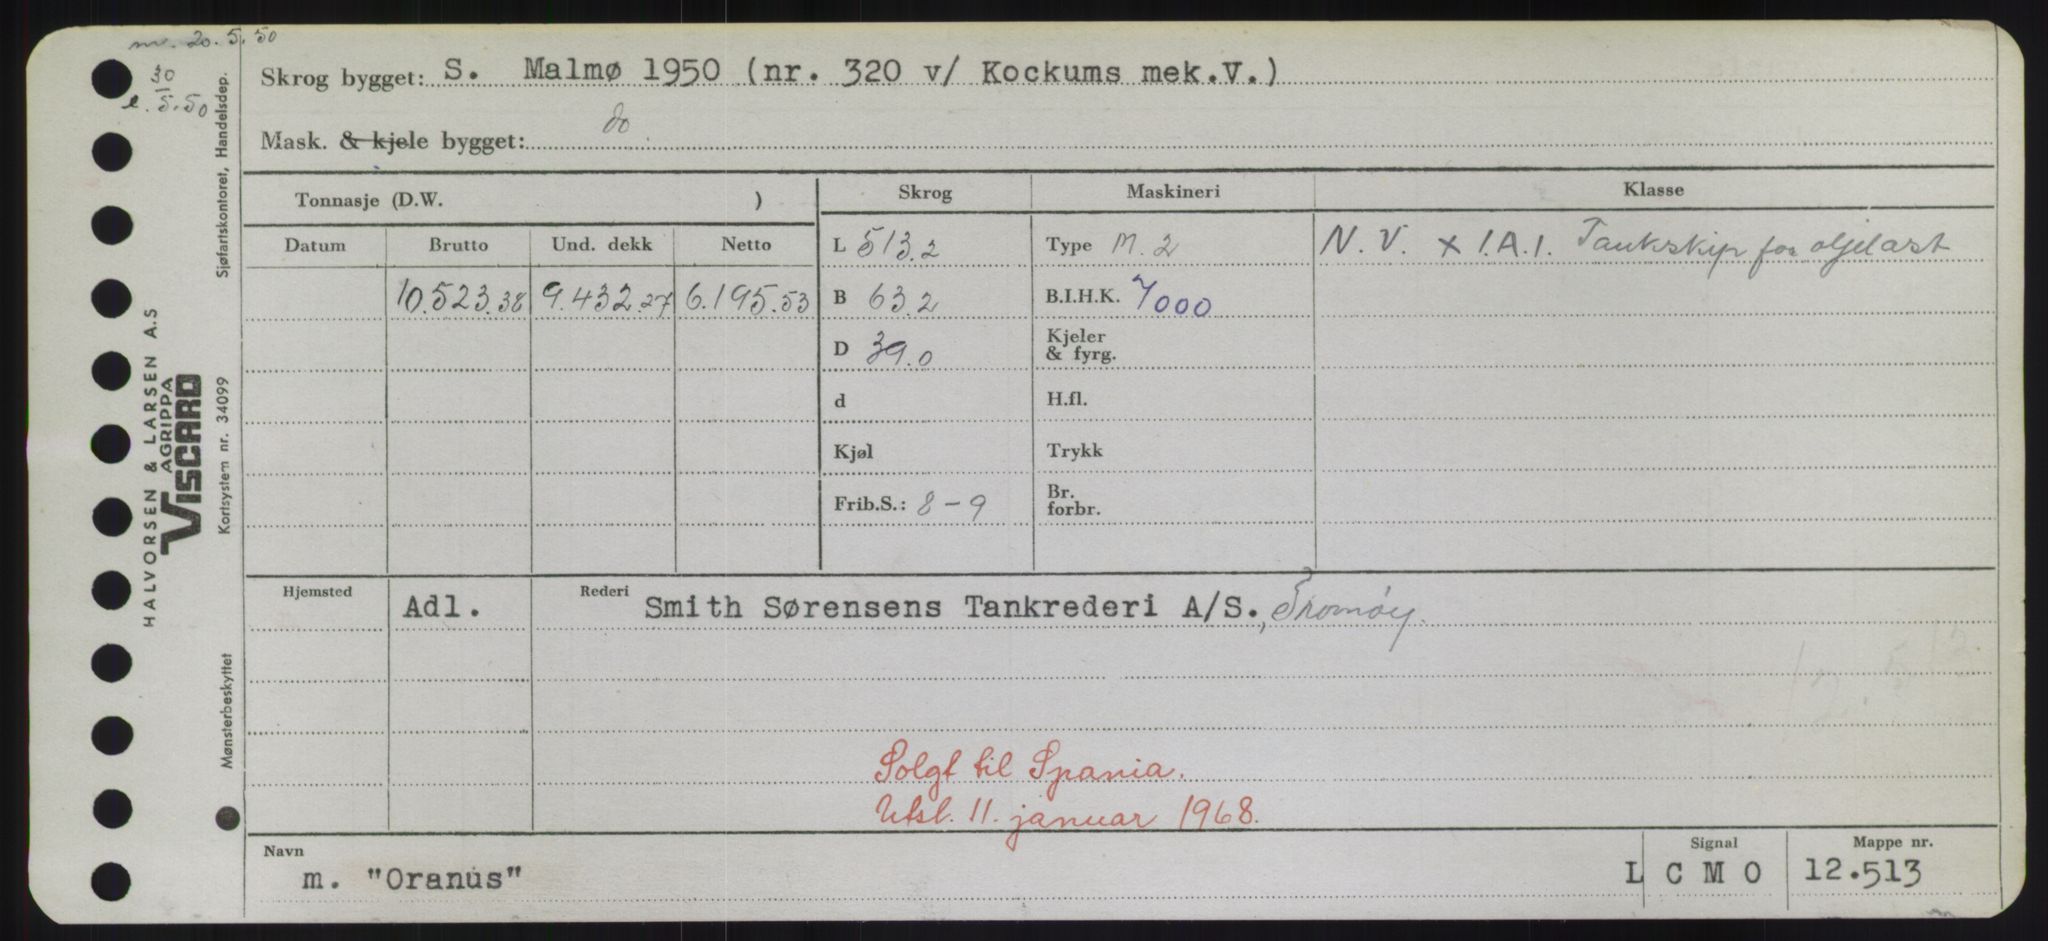 20.5.50
30
5.50
Skrog bygget: S. Malmø 1950 (nr. 320 v/ Kockums mek.V.)
Mask. & kjele bygget: do.
Tonnasje (D.W. )
Skrog
Maskineri
Klasse
Datum
Brutto
Und. dekk
Netto
L 513.2
Type M. 2
N. V. x 1.A.1. Tankskip for oljelast
10.523.38
9.432.27
6.195.53
B 63.2
B.I.H.K. 7000
D 39.0
Kjeler
& fyrg.
d
H.fl.
Kjøl
Trykk
Frib.S.: 8-9
Br.
forbr.
Hjemsted
Adl.
Rederi
Smith Sørensens Tankrederi A/S., Tromøy.
Solgt til Spania.
Utsl. 11. januar 1968.
Navn
m. "Oranus"
Signal
L C M O
Mappe nr.
12.513
HALVORSEN & LARSEN A.S
AGRIPPA
VISCARD
Sjøfartskontoret, Handelsdep.
Kortsystem nr. 34099
Mønsterbeskyttet